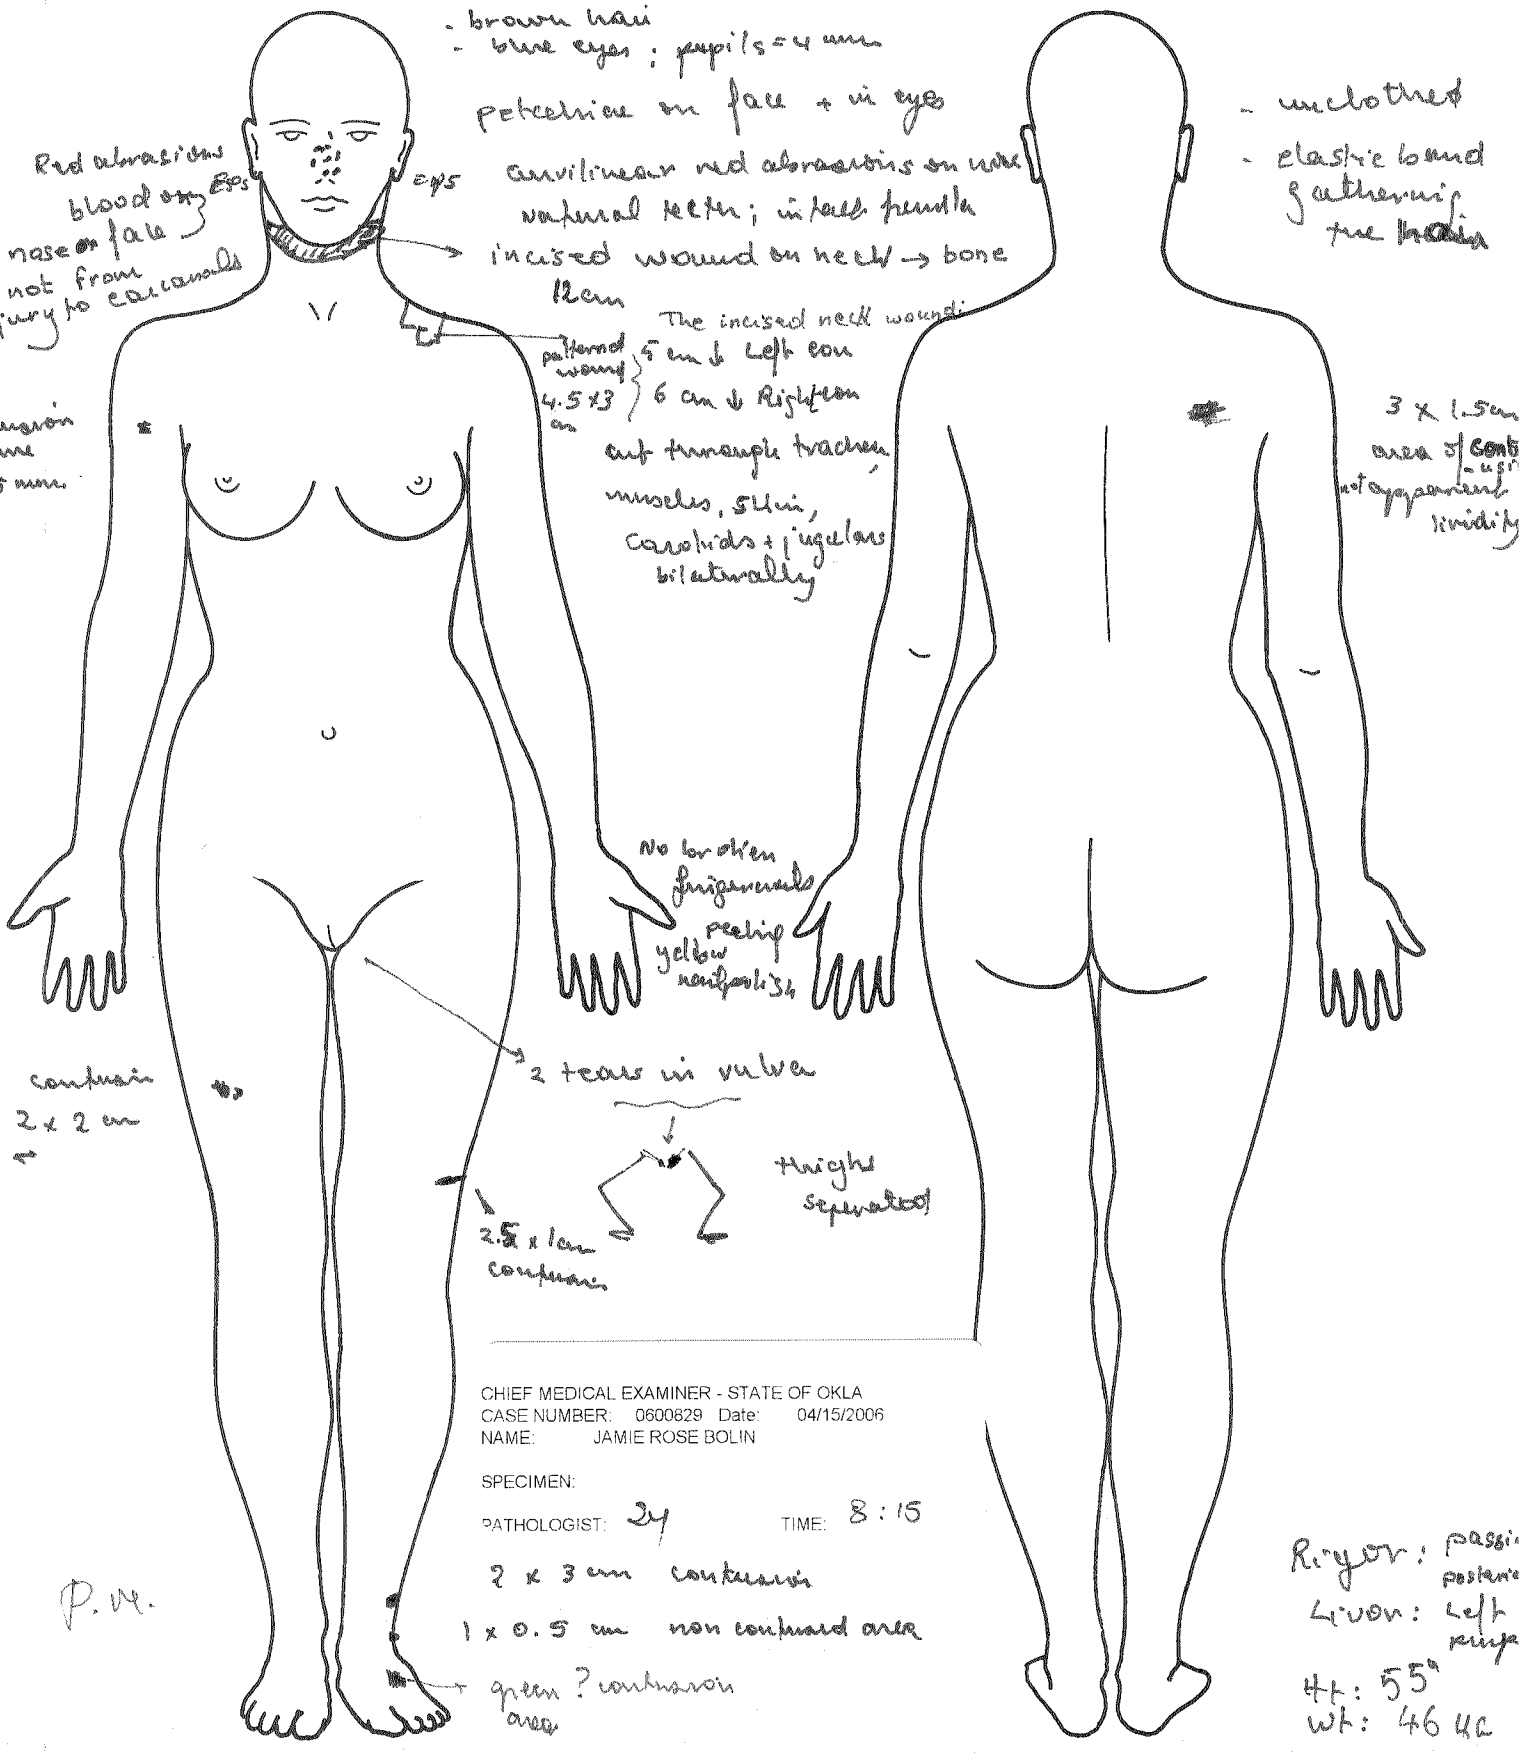 - brown hair
- blue eyes ; pupils = 4 mm
petechiae on face + in eyes
curvilinear red abrasions on nose
natural teeth ; intact frenula
incised wound on neck → bone
12 cm
The incised neck wound:
5 cm ↓ Left ear
6 cm ↓ Right ear
patterned
wound
4.5 x 3
cm
cut through trachea,
muscles, skin,
carotids + jugulars
bilaterally
Red abrasions
blood on
nose or face
not from
injury to ear canals
Eps
= eps
5 mm.
- unclothed
- elastic band
gathering
the hair
3 x 1.5 cm
area of cont
-usi
not apparent
lividity
No broken
fingernails
peeling
yellow
nailpolish
contusion
2 x 2 cm
2 tears in vulva
thighs
seperated
2.5 x 1 cm
contusion
CHIEF MEDICAL EXAMINER - STATE OF OKLA
CASE NUMBER: 0600829 Date: 04/15/2006
NAME: JAMIE ROSE BOLIN
SPECIMEN:
PATHOLOGIST: TIME: 8:15
2 x 3 cm contusion
1 x 0.5 cm non contused area
green ? contusion
area
P.M.
Rigor: passi
posterio
Livor: Left
Ht: 55"
Wt: 46 KG